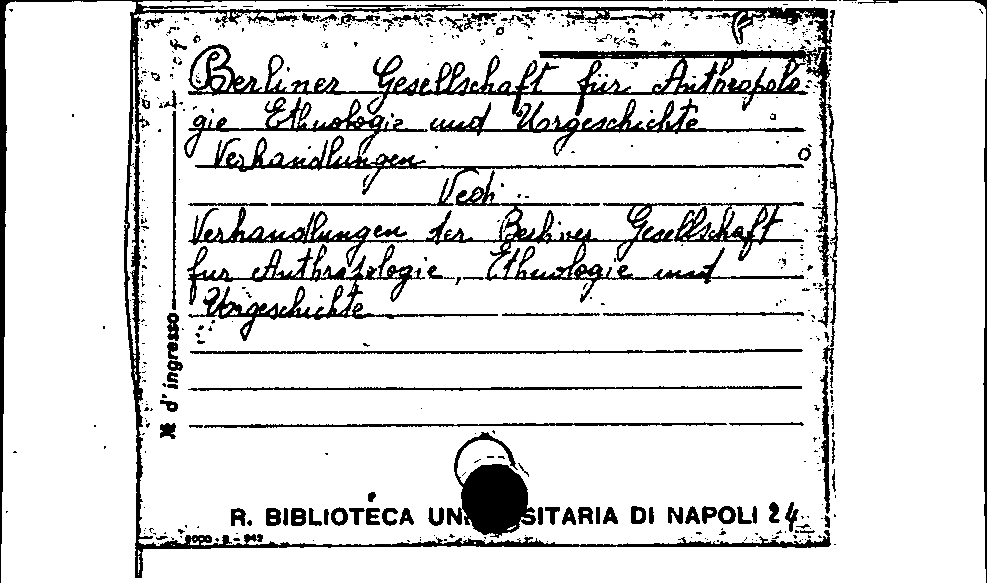 Berliner Gesellschaft für Anthropolo
gie Ethnologie und Urgeschichte
Verhandlungen
Vedi
Verhandlungen der Berliner Gesellschaft
fur Anthropologie, Ethnologie und
Urgeschichte.
№ d'ingresso
R. BIBLIOTECA UNI SITARIA DI NAPOLI 24